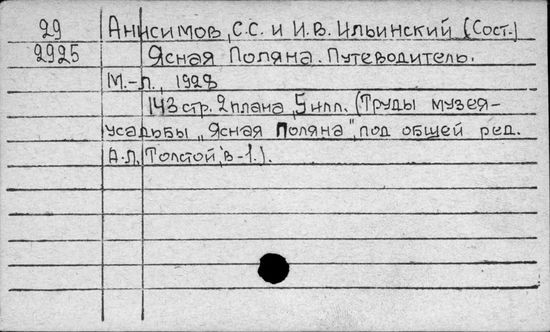 29 Анисимов, С.С. и И.В. Ильинский (Сост.)
2925 Ясная Поляна. Путеводитель.
М.-Л., 1928
143 стр. 2 плана, 5 илл. (Труды музея-
усадьбы "Ясная Поляна", под общей ред.
А.Л. Толстой, в-1.).